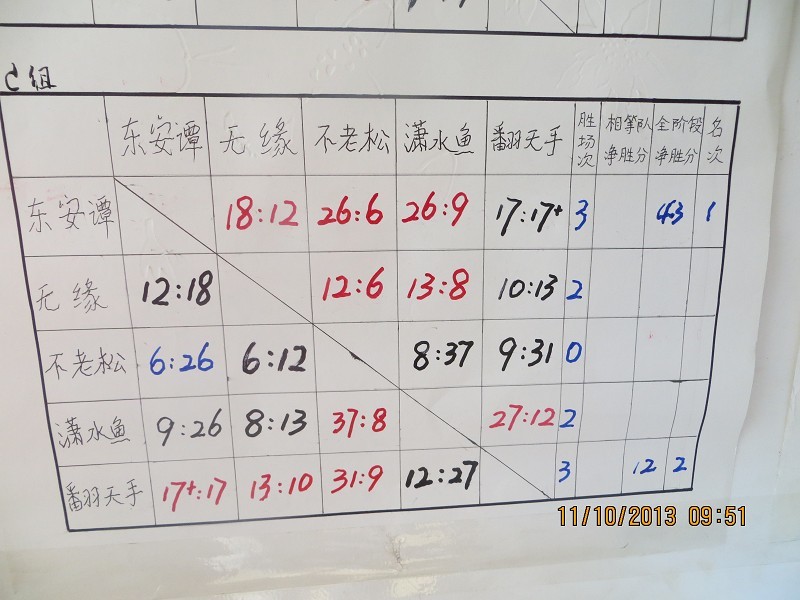 C组
东安谭 无缘 不老松 潇水鱼 翻羽天手 胜场次 相擎队净胜分 全阶段净胜分 名次
东安谭 18:12 26:6 26:9 17:17+ 3 43 1
无缘 12:18 12:6 13:8 10:13 2
不老松 6:26 6:12 8:37 9:31 0
潇水鱼 9:26 8:13 37:8 27:12 2
翻羽天手 17+:17 13:10 31:9 12:27 3 12 2
11/10/2013 09:51